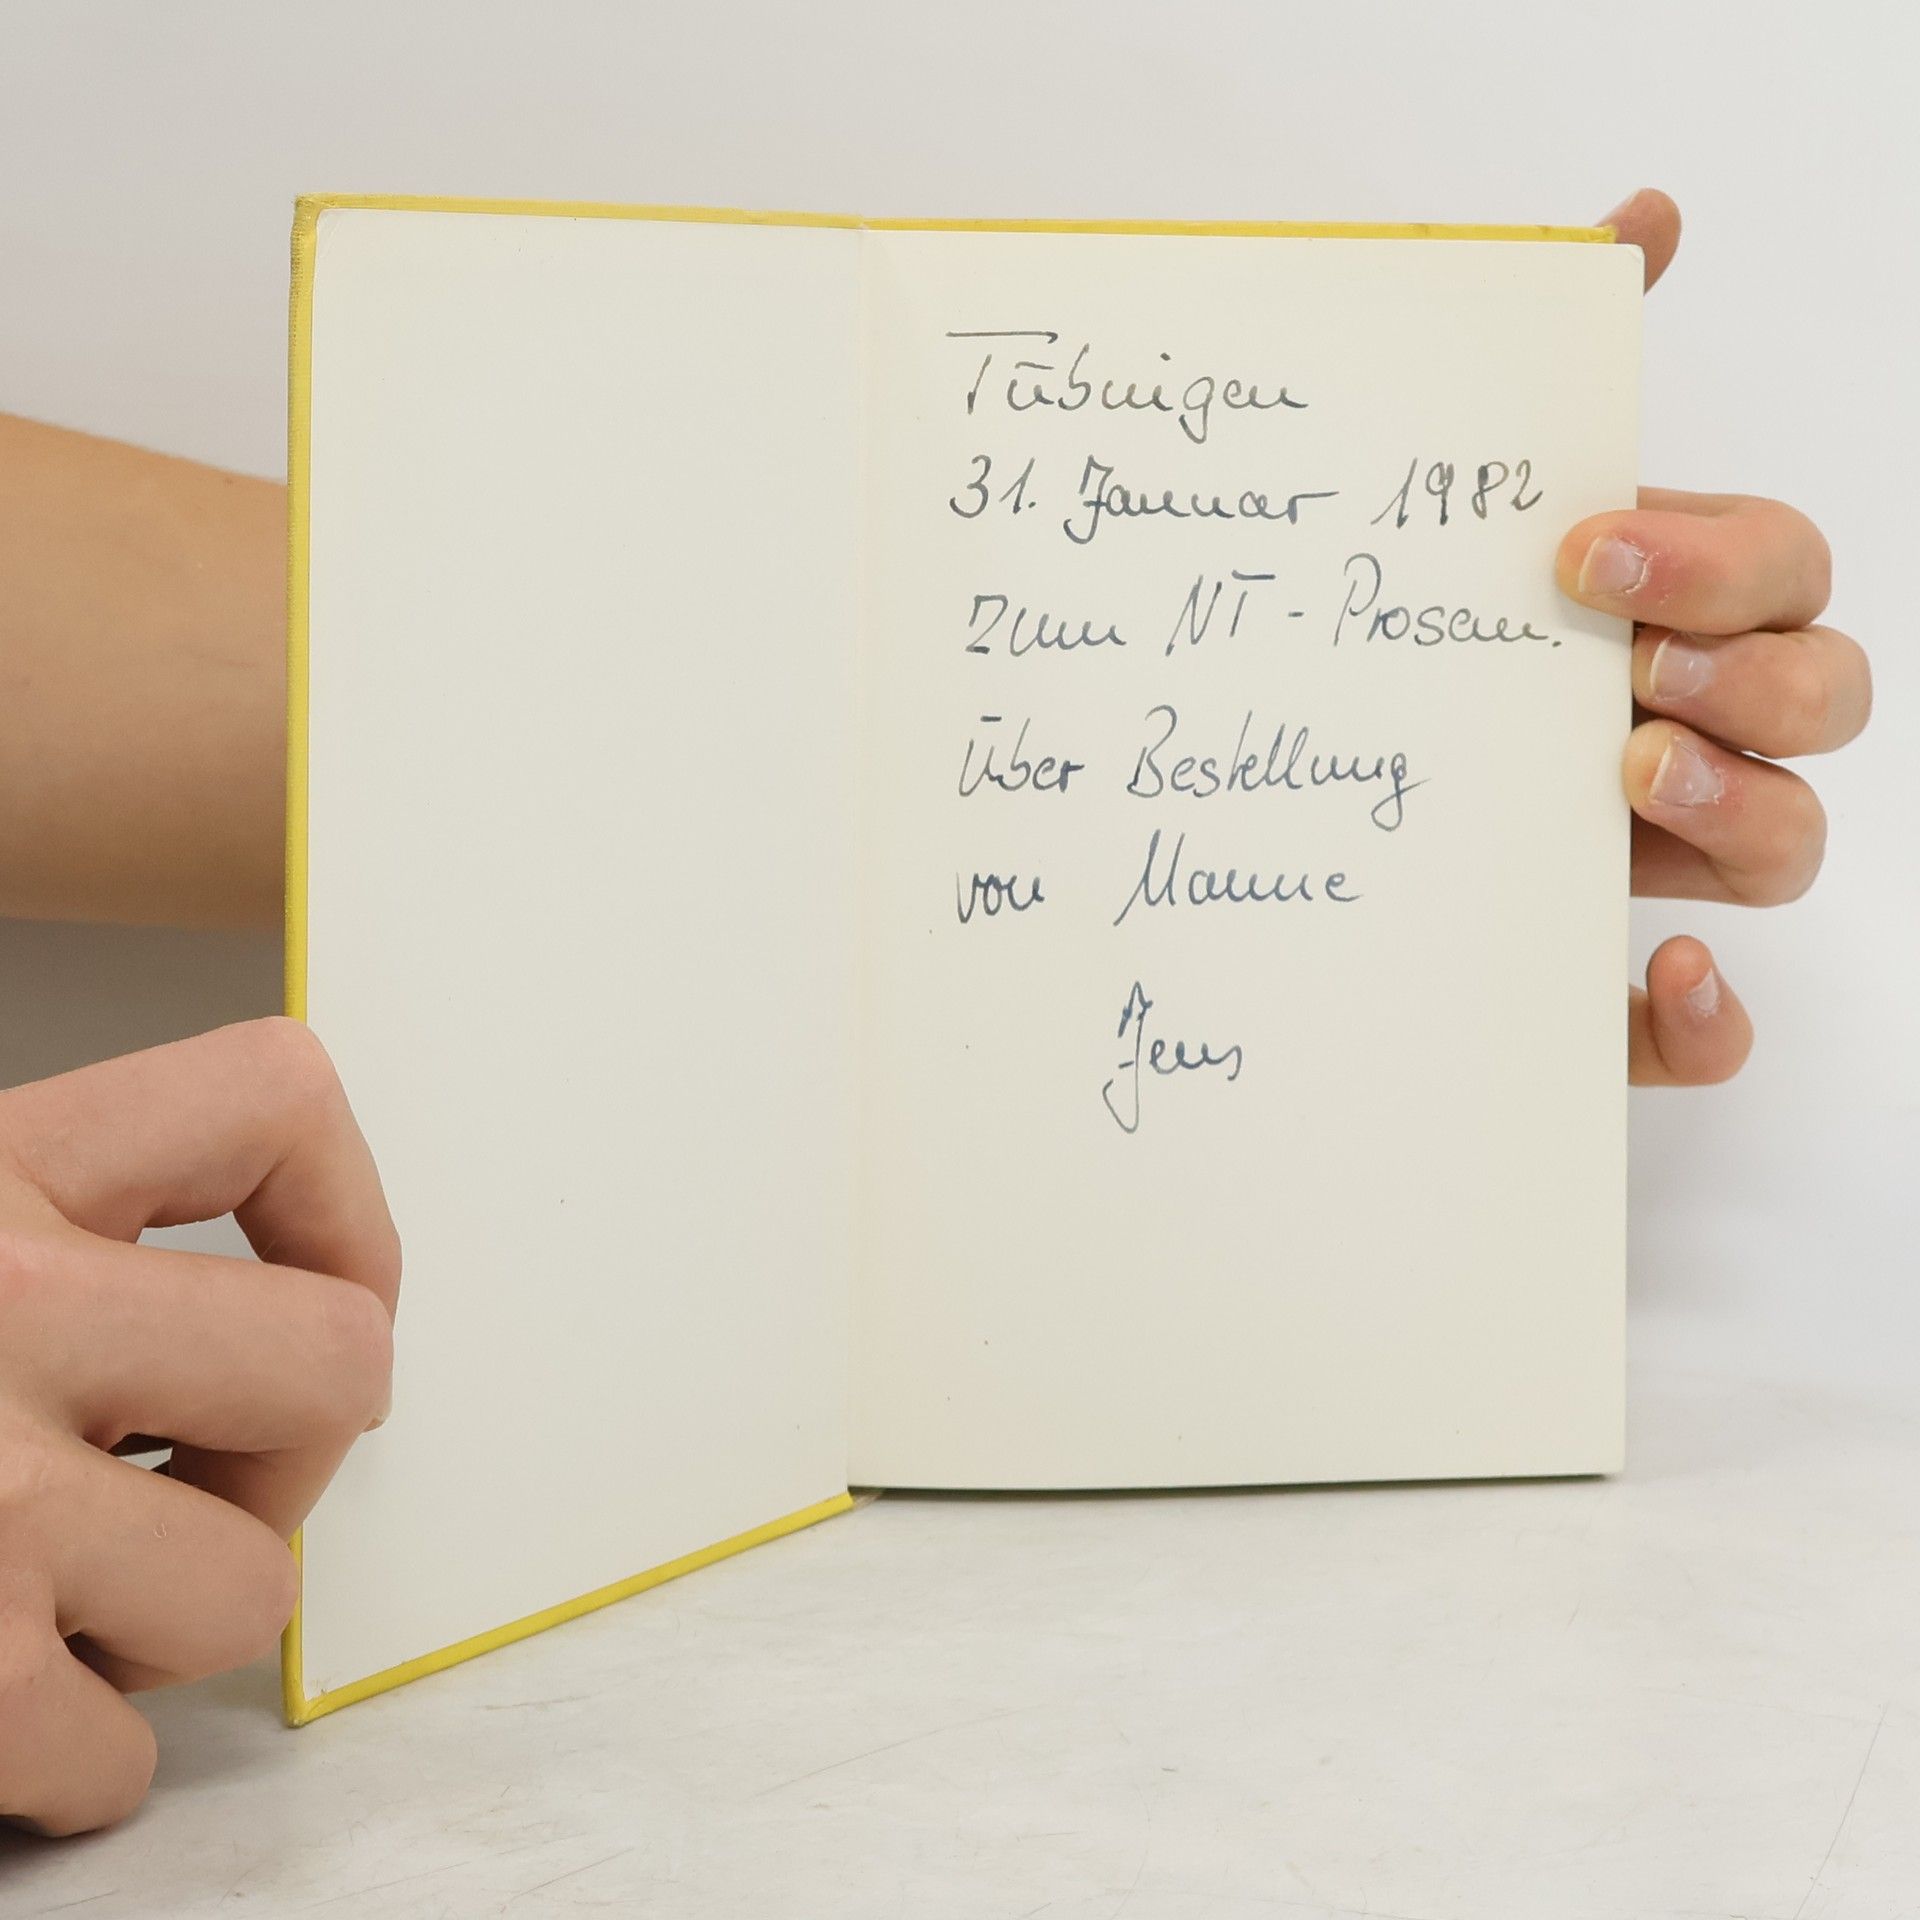 Tübingen
31. Januar 1982
zum NT-Prosem.
über Bestellung
von Manne
Jens